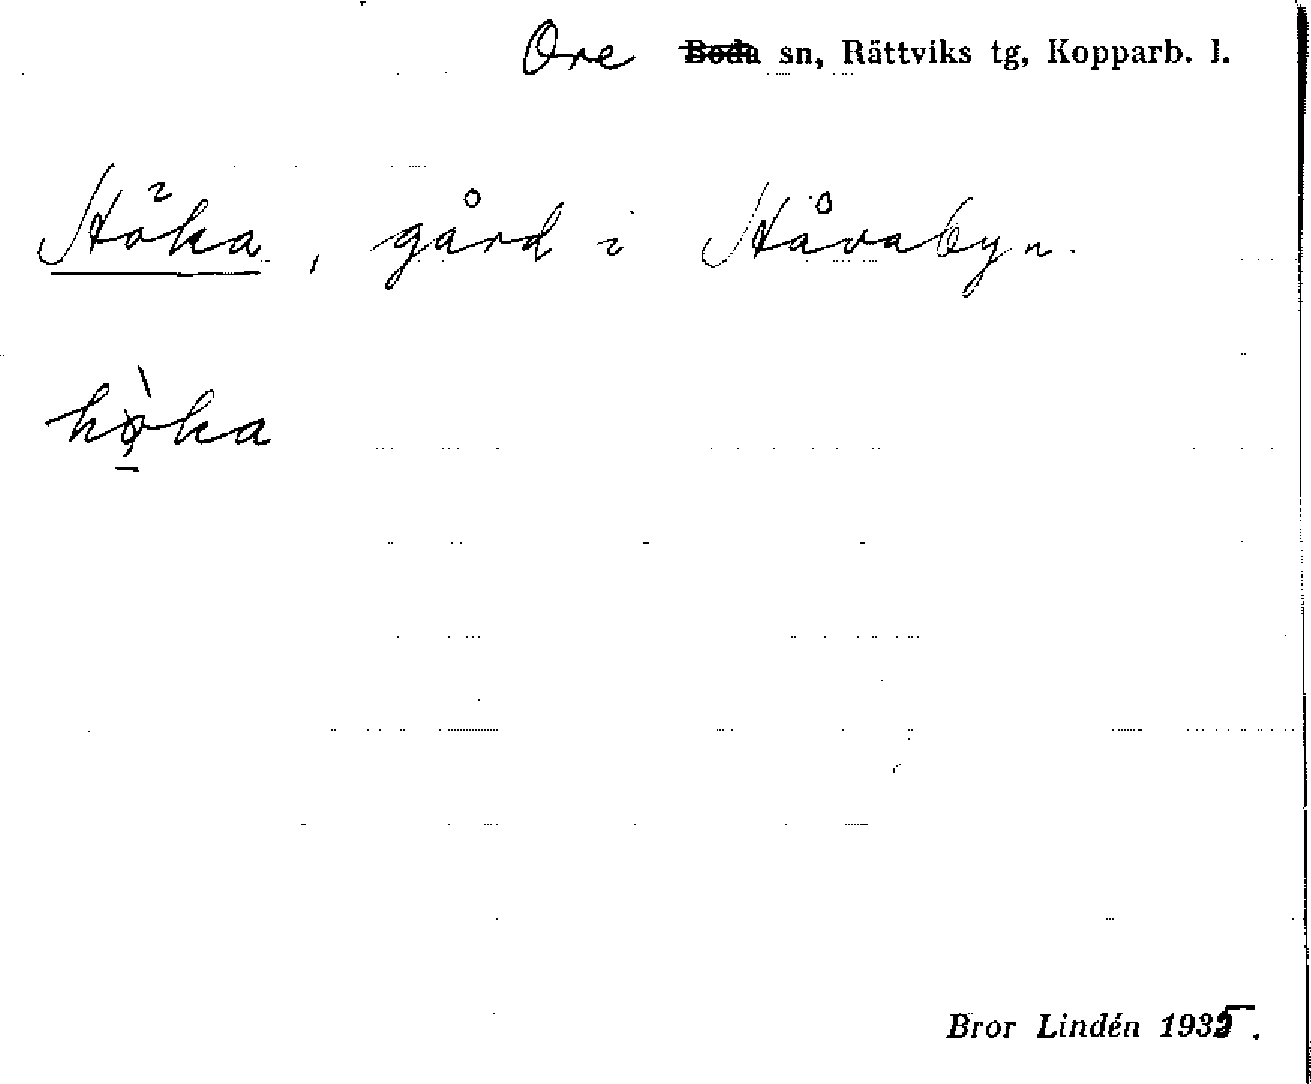 Ore Boda sn, Rättviks tg, Kopparb. l.
Höka, gård i Håvabyn.
hø̀ka
Bror Lindén 1935.